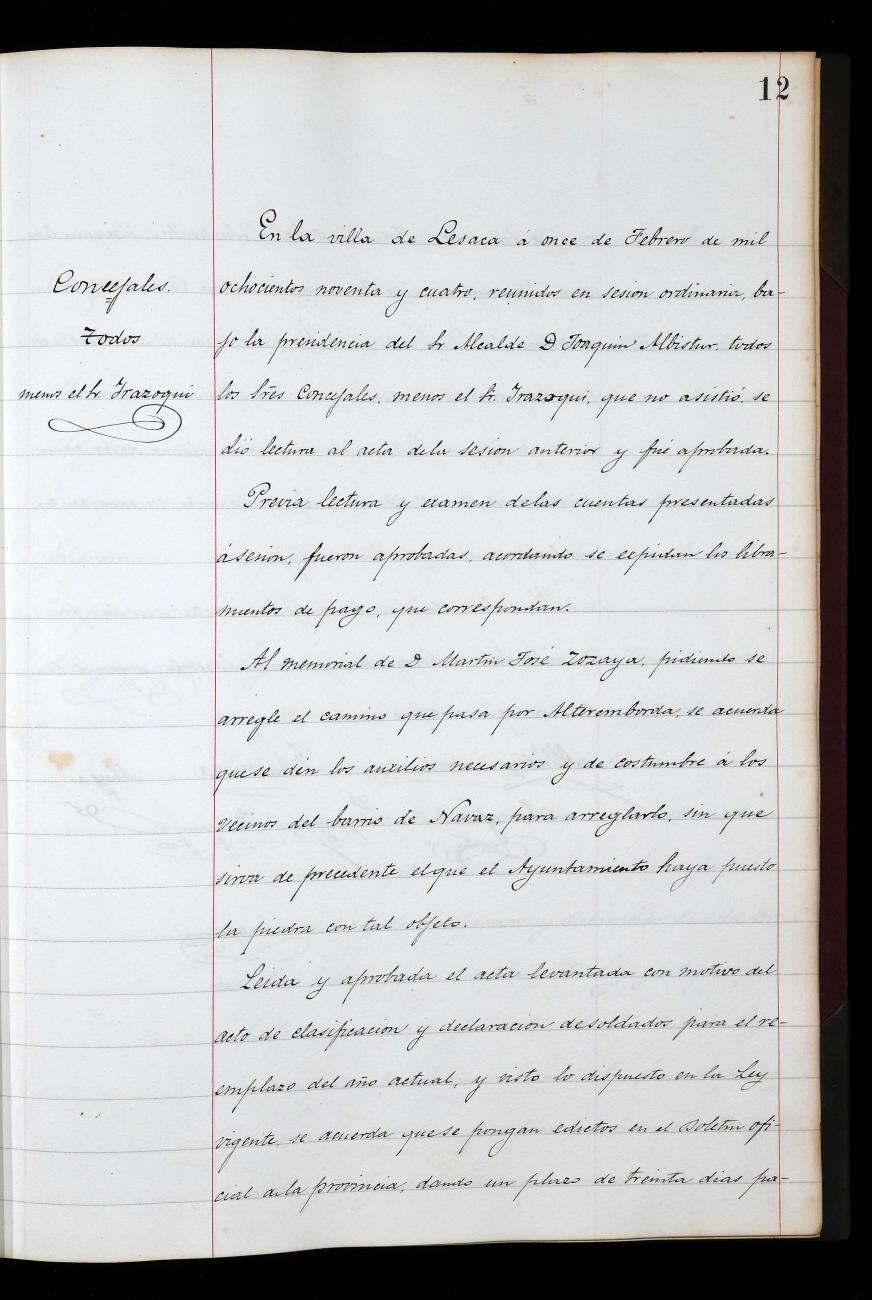 12
En la villa de Lesaca á once de Febrero de mil
Concejales.
ochocientos noventa y cuatro, reunidos en sesion ordinaria, ba-
Todos
jo la presidencia del Sr Alcalde D Joaquin Albistur, todos
menos el Sr. Irazoqui
los Sres Concejales, menos el Sr. Irazoqui, que no asistió, se
dió lectura al acta de la sesion anterior y fué aprobada.
Previa lectura y examen de las cuentas presentadas
á sesion, fueron aprobadas, acordando se expidan los libra-
mientos de pago, que correspondan.
Al memorial de D Martin José Zozaya, pidiendo se
arregle el camino que pasa por Alteremborda, se acuerda
que se dén los auxilios necesarios y de costumbre á los
vecinos del barrio de Navaz, para arreglarlo, sin que
sirva de precedente el que el Ayuntamiento haya puesto
la piedra con tal objeto.
Leida y aprobada el acta levantada con motivo del
acto de clasificacion y declaracion de soldados para el re-
emplazo del año actual, y visto lo dispuesto en la Ley
vigente, se acuerda que se pongan edictos en el Boletin ofi-
cial de la provincia, dando un plazo de treinta dias pa-